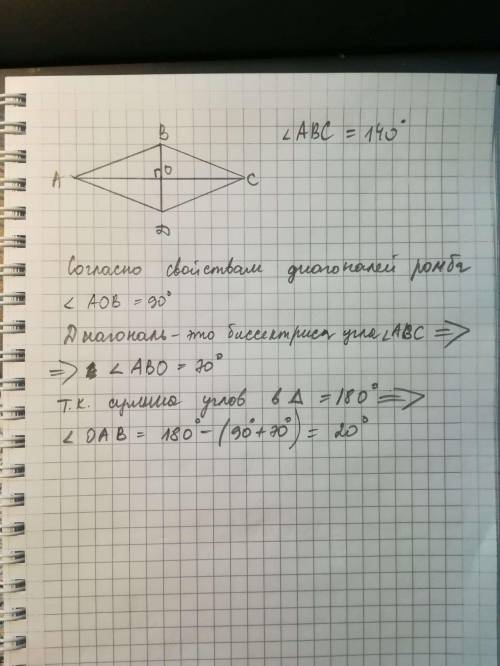 B
∠ABC = 140°
A
O
C
D
Согласно свойствам диагоналей ромба
∠ AOB = 90°
Диагональ - это биссектриса угла ∠ABC ⟹
⟹ ∠ ABO = 70°
т.к. сумма углов в Δ = 180° ⟹
∠ OAB = 180° - (90° + 70°) = 20°